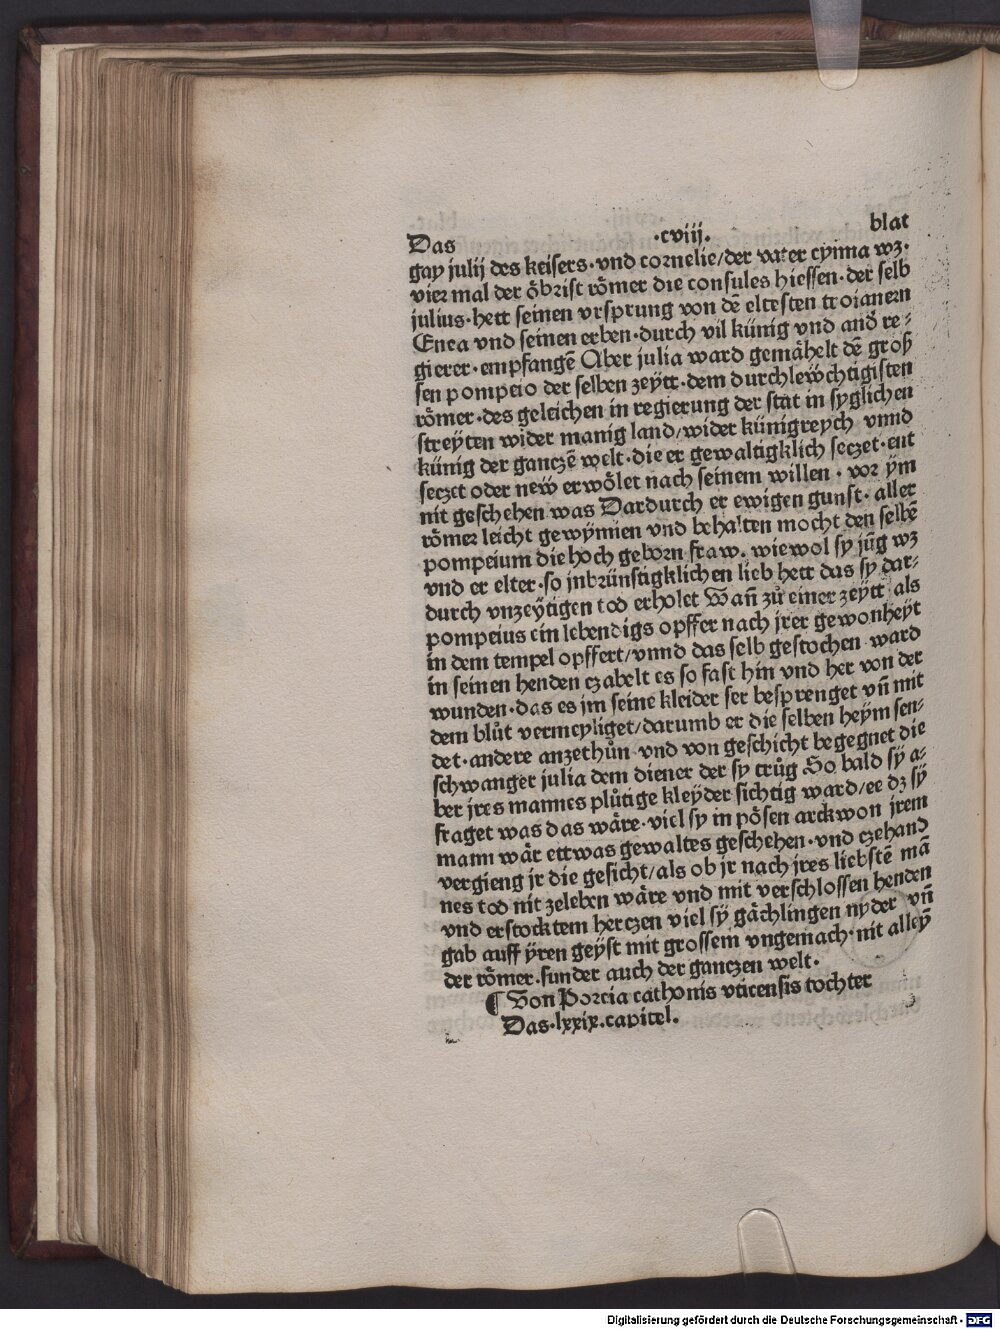 Das .cviij. blat
gay julij des keisers·vnd cornelie/der vater cynna wz·
vier mal der öbrist römer die consules hiessen·der selb
julius·hett seinen vrsprung von dē eltesten troianern
Enea vnd seinen erben·durch vil künig vnd and̄ re⸗
gierer·empfangē Aber julia ward gemähelt dē groß
sen pompeio der selben zeÿtt·dem durchleẅchtigisten
römer·des geleichen in regierung der stat in syglichen
streÿten wider manig land/wider künigreych vnnd
künig der ganczē welt·die er gewaltigklich seczet·ent
seczet oder neẅ erwölet nach seinem willen·vor ÿm
nit geschehen was Dardurch er ewigen gunst·aller
römer leicht gewÿnnen vnd behalten mocht den selbē
pompeium die hoch geborn fraw. wiewol sy jūg wz
vnd er elter·so jnbrünstigklichen lieb hett das sy dar⸗
durch vnzeÿtigen tod erholet Wañ zů einer zeÿtt als
pompeius ein lebendigs opffer nach jrer gewonheÿt
in dem tempel opffert/vnnd das selb gestochen ward
in seinen henden czabelt es so fast hin vnd her von der
wunden·das es jm seine kleider ser besprenget vñ mit
dem blůt vermeyliget/darumb er die selben heÿm sen⸗
det·andere anzethůn vnd von geschicht begegnet die
schwanger julia dem diener der sy trůg So bald sÿ a⸗
ber jres mannes plůtige kleÿder sichtig ward/ee dz sÿ
fraget was das wäre·viel sy in pösen arckwon jrem
mann wär ettwas gewaltes geschehen·vnd czehand
vergieng jr die gesicht/als ob jr nach jres liebstē mā
nes tod nit zeleben wäre vnd mit verschlossen henden
vnd erstocktem herczen viel sÿ gächlingen nyder vñ
gab auff ÿren geÿst mit grossem vngemach·nit alleÿ
der römer.sunder auch der ganczen welt·
¶ Von Porcia cathonis vticensis tochter
Das·lxxix.capitel.
Digitalisierung gefördert durch die Deutsche Forschungsgemeinschaft - DFG